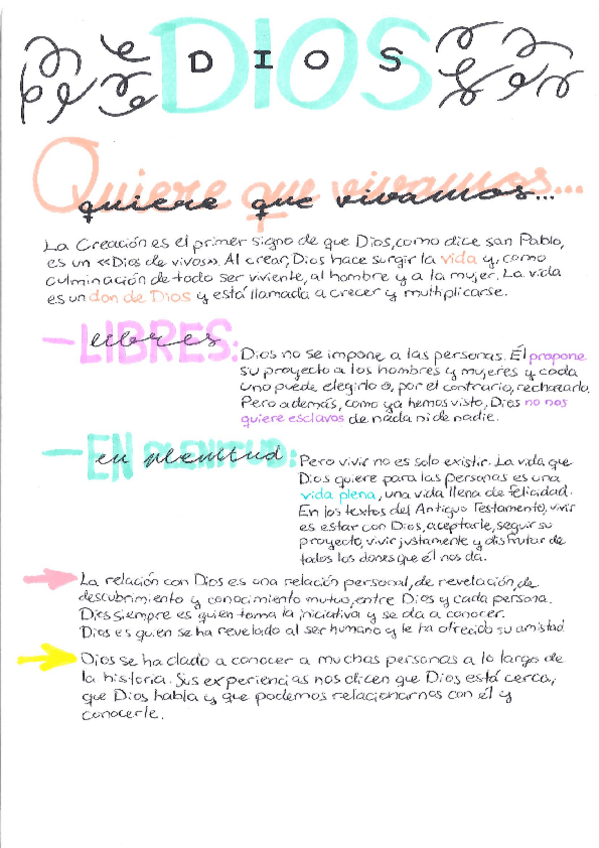 DIOS
Quiere que vivamos...
La Creación es el primer signo de que Dios, como dice san Pablo,
es un «Dios de vivos». Al crear, Dios hace surgir la vida y, como
culminación de todo ser viviente, al hombre y a la mujer. La vida
es un don de Dios y está llamada a crecer y multiplicarse.
— LIBRES:
Dios no se impone a las personas. Él propone
su proyecto a los hombres y mujeres y cada
uno puede elegirlo o, por el contrario, rechazarlo.
Pero además, como ya hemos visto, Dios no nos
quiere esclavos de nada ni de nadie.
— EN PLENITUD:
Pero vivir no es solo existir. La vida que
Dios quiere para las personas es una
vida plena, una vida llena de felicidad.
En los textos del Antiguo Testamento, vivir
es estar con Dios, aceptarle, seguir su
proyecto, vivir justamente y disfrutar de
todos los dones que él nos da.
La relación con Dios es una relación personal, de revelación, de
descubrimiento y conocimiento mutuo, entre Dios y cada persona.
Dios siempre es quien toma la iniciativa y se da a conocer.
Dios es quien se ha revelado al ser humano y le ha ofrecido su amistad.
Dios se ha dado a conocer a muchas personas a lo largo de
la historia. Sus experiencias nos dicen que Dios está cerca,
que Dios habla y que podemos relacionarnos con él y
conocerle.